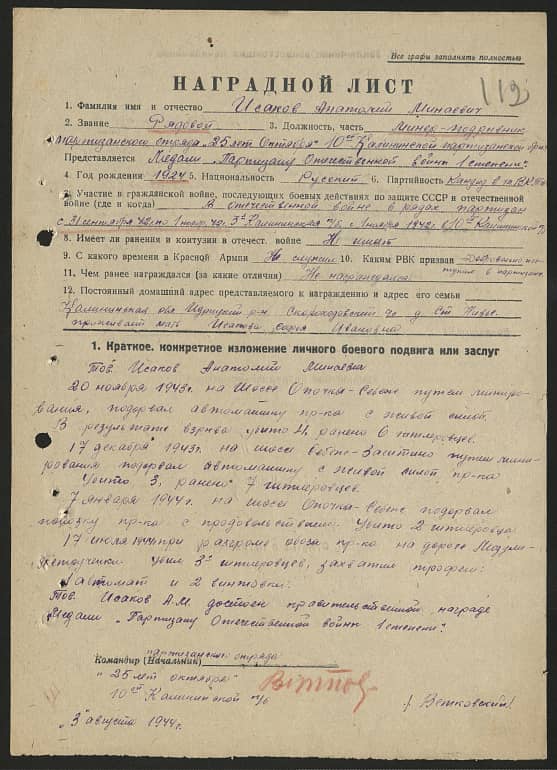 Все графы заполнять полностью
НАГРАДНОЙ ЛИСТ
112
1. Фамилия имя и отчество Исаков Анатолий Минаевич
2. Звание Рядовой 3. Должность, часть Минер-подрывник
партизанского отряда "25 лет Октября" 10ой Калининской партизанской
Представляется Медали "Партизану Отечественной войны 1 степени".
4. Год рождения 1924 5. Национальность Русский 6. Партийность Канд. в
7. Участие в гражданской войне, последующих боевых действиях по защите СССР и отечественной
войне (где и когда) В отечественной войне в рядах партизан
3ей Калининская п/б, с 10ой Калининской
8. Имеет ли ранения и контузии в отечест. войне Не имеет
9. С какого времени в Красной Армии Не служил 10. Каким РВК призван Добровольно
11. Чем ранее награждался (за какие отличия) Не награждался
12. Постоянный домашний адрес представляемого к награждению и адрес его семьи
Калининская обл Идрицкий р-н Скороходовский д. Ст
проживает мать Исакова Ивановна
1. Краткое, конкретное изложение личного боевого подвига или заслуг
Тов. Исаков Анатолий Минаевич
20 ноября 1943г. на шоссе Опочка-Себеж путем миниро-
вания, подорвал автомашину пр-ка с живой силой.
В результате взрыва убито 4, ранено 6 гитлеровцев.
17 декабря 1943г. на шоссе Себеж-Заситино путем мини-
рования подорвал автомашину с живой силой пр-ка
Убито 3, ранено 7 гитлеровцев.
7 января 1944г. на шоссе Опочка-Себеж подорвал
повозку пр-ка с продовольствием. Убито 2 гитлеровца
17 июля 1944г при разгроме обоза пр-ка на дороге
убил 3х гитлеровцев, захватил трофеи:
1 автомат и 2 винтовки.
Тов. Исаков А.М. достоен правительственной награде
Медали "Партизану Отечественной войны 1 степени".
партизанского отряда
Командир (Начальник)
"25 лет октября"
10ой Калининской п/б
/ Ветковский/
"3" августа 1944г.